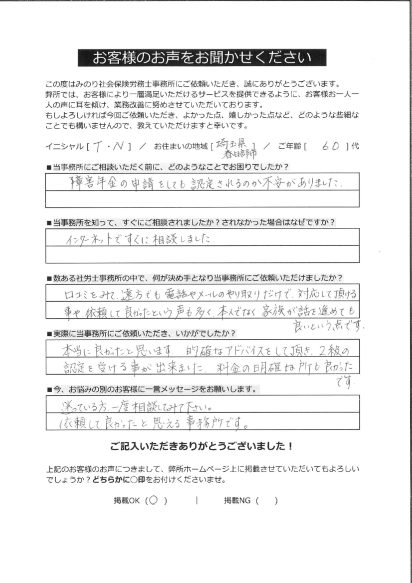 お客様のお声をお聞かせください
この度はみのり社会保険労務士事務所にご依頼いただき、誠にありがとうございます。
弊所では、お客様により一層満足いただけるサービスを提供できるように、お客様お一人一
人の声に耳を傾け、業務改善に努めさせていただいております。
もしよろしければ今回ご依頼いただき、よかった点、嬉しかった点など、どのような些細な
ことでも構いませんので、教えていただけますと幸いです。
イニシャル [ T・N ] / お住まいの地域 [ 埼玉県
春日部市 ] / ご年齢 [ 60 ] 代
■当事務所にご相談いただく前に、どのようなことでお困りでしたか？
障害年金の申請をしても認定されるのか不安がありました。
■当事務所を知って、すぐにご相談されましたか？されなかった場合はなぜですか？
インターネットですぐに相談しました
■数ある社労士事務所の中で、何が決め手となり当事務所にご依頼いただけましたか？
口コミをみて、遠方でも電話やメールのやり取りだけで、対応して頂ける
事や依頼して良かったという声も多く、本人でなく家族が話を進めても
良いという点です。
■実際に当事務所にご依頼いただき、いかがでしたか？
本当に良かったと思います 的確なアドバイスをして頂き、2級の
認定を受ける事が出来ました 料金の明確な所も良かった
です
■今、お悩みの別のお客様に一言メッセージをお願いします。
迷っている方一度相談してみて下さい。
依頼して良かったと思える事務所です。
ご記入いただきありがとうございました！
上記のお客様のお声につきまして、弊所ホームページ上に掲載させていただいてもよろしい
でしょうか？どちらかに○印をお付けくださいませ。
掲載OK （○） | 掲載NG （ ）